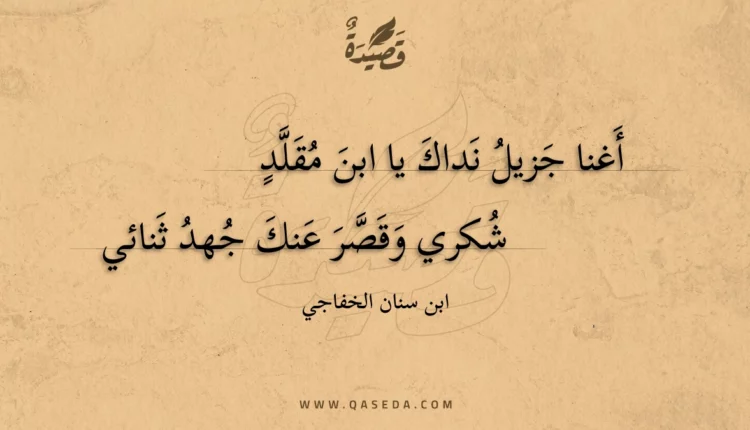 قَصِيْدَةٌ
أَغنا جَزيلُ نَداكَ يا ابنَ مُقَلَّدٍ
شُكري وَقَصَّرَ عَنكَ جُهدُ ثَنائي
ابن سنان الخفاجي
WWW.QASEDA.COM